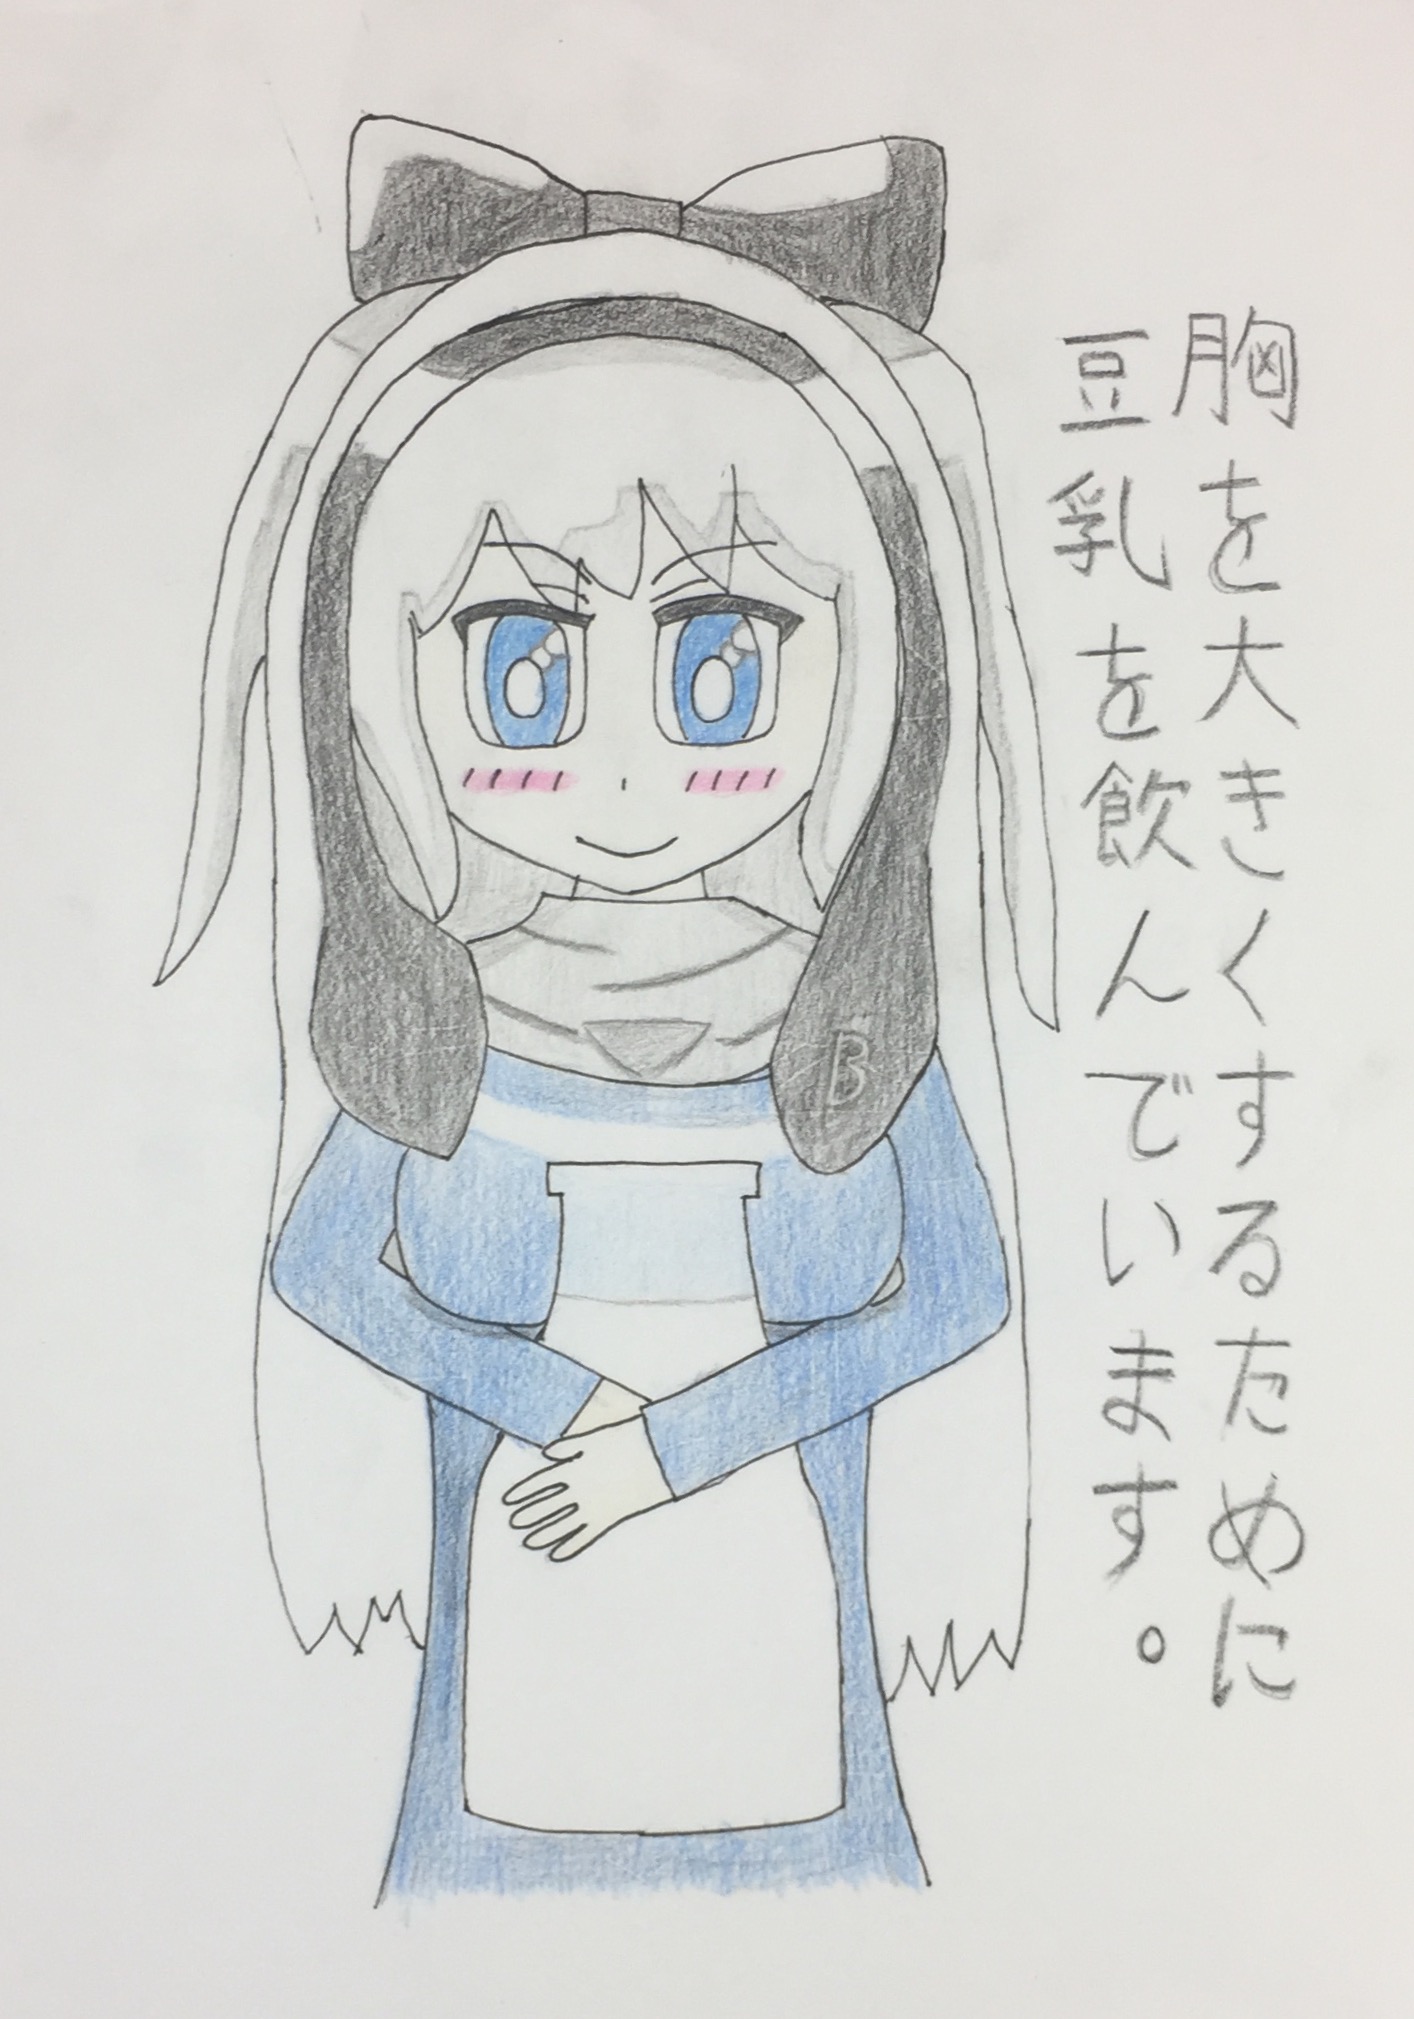 胸を大きくするために
豆乳を飲んでいます。
B